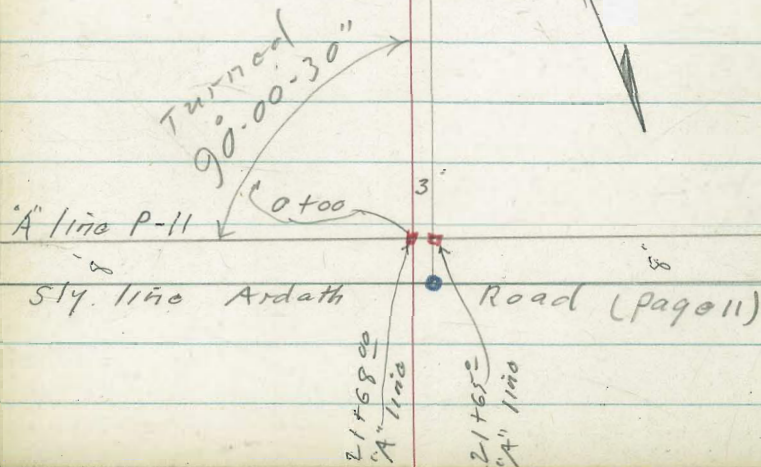 Turned
90°-00-30"
3'
0+00
"A" line P-11
8'
8'
Sly. line Ardath Road (page 11)
21+68 00
"A" line
21+65 =
"A" line